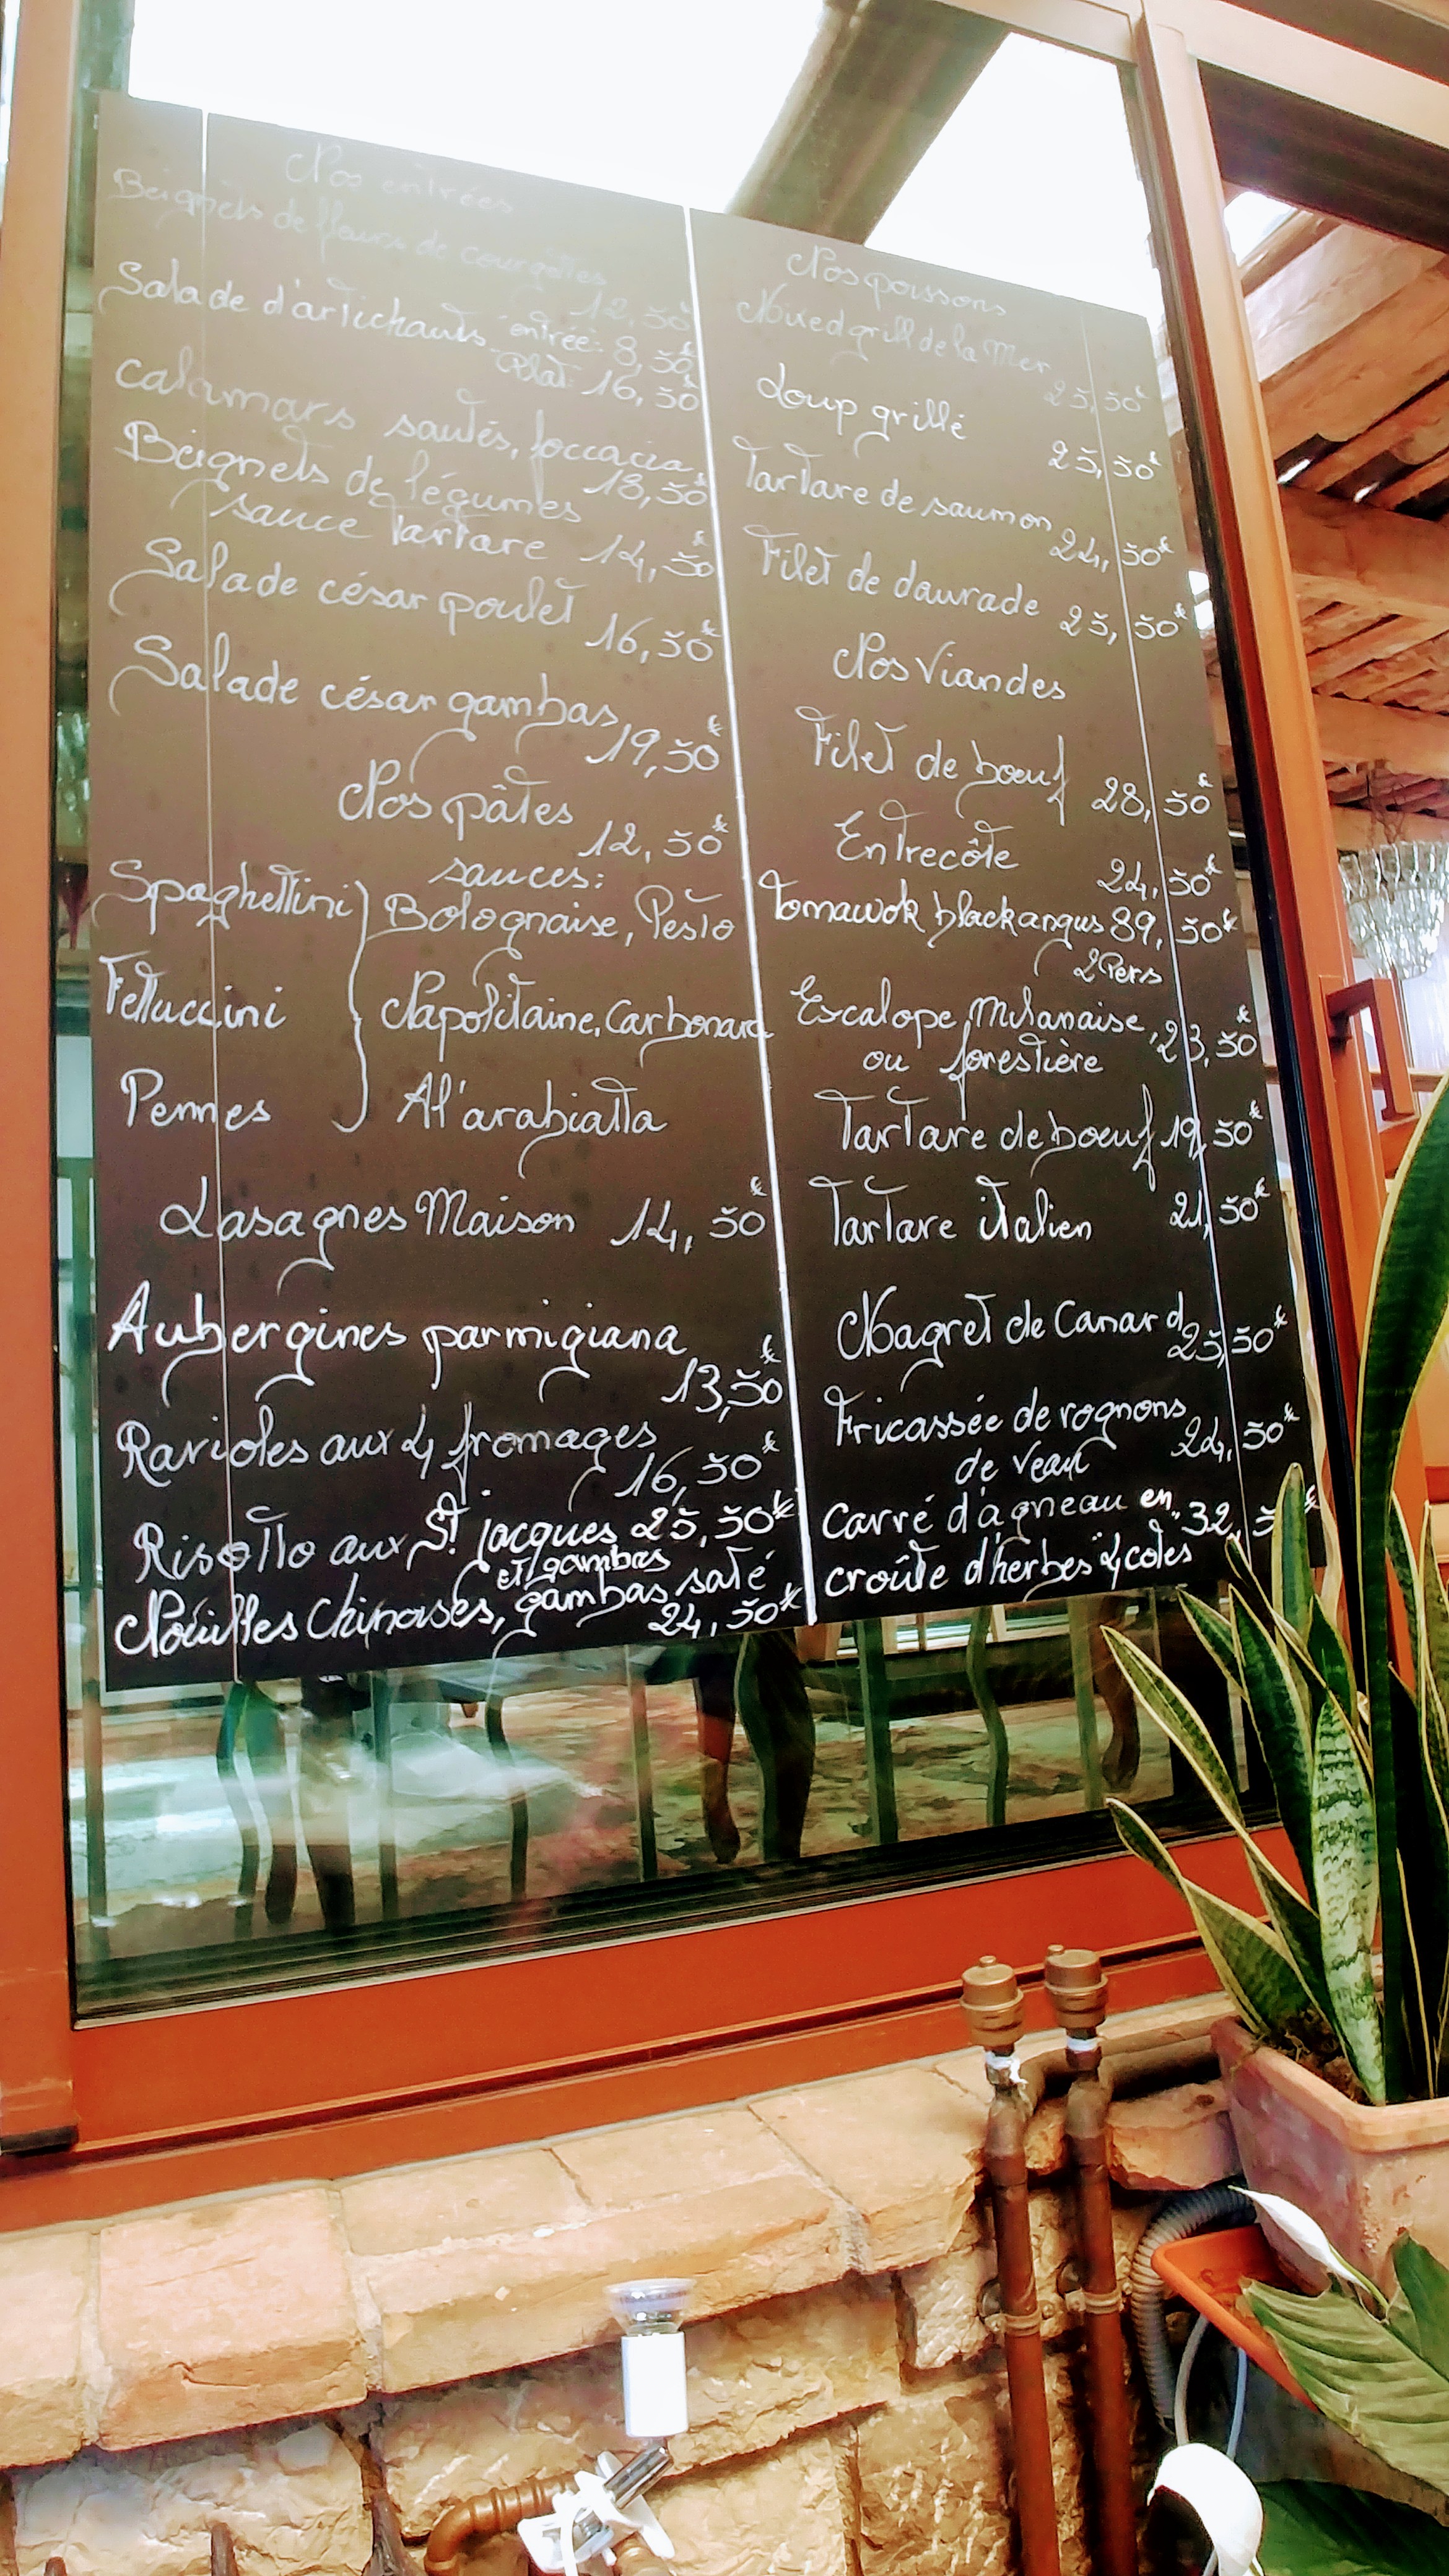 Nos entrées
Beignets de fleurs de courgettes
12,50€
Salade d'artichauts entrée: 8,50€
Plat: 16,50€
calamars sautés, foccacia,
18,50€
Beignets de légumes
sauce tartare 14,50€
Salade césar poulet
16,50€
Salade césar gambas,
19,50€
Nos pâtes
12,50€
sauces:
Spaghettini Bolognaise, Pesto
Fettuccini Napolitaine, Carbonara
Pennes Al'arabiatta
Lasagnes Maison 14,50€
Aubergines parmigiana
13,50€
Ravioles aux 4 fromages
16,50€
Risotto aux St jacques 25,50€
et gambas
Nouilles Chinoises, gambas saté
24,50€
Nos poissons
Mixed grill de la Mer
25,50€
Loup grillé
25,50€
Tartare de saumon
24,50€
Filet de daurade 25,50€
Nos Viandes
Filet de boeuf 28,50€
Entrecôte
24,50€
Tomawok black angus 89,50€
2 Pers
Escalope, Milanaise, 23,50€
ou forestière
Tartare de boeuf 19,50€
Tartare italien 21,50€
Magret de Canard
25,50€
Fricassée de rognons
de Veau 24,50€
Carré d'agneau en 32,5 €
croûte d'herbes "4 cotes"